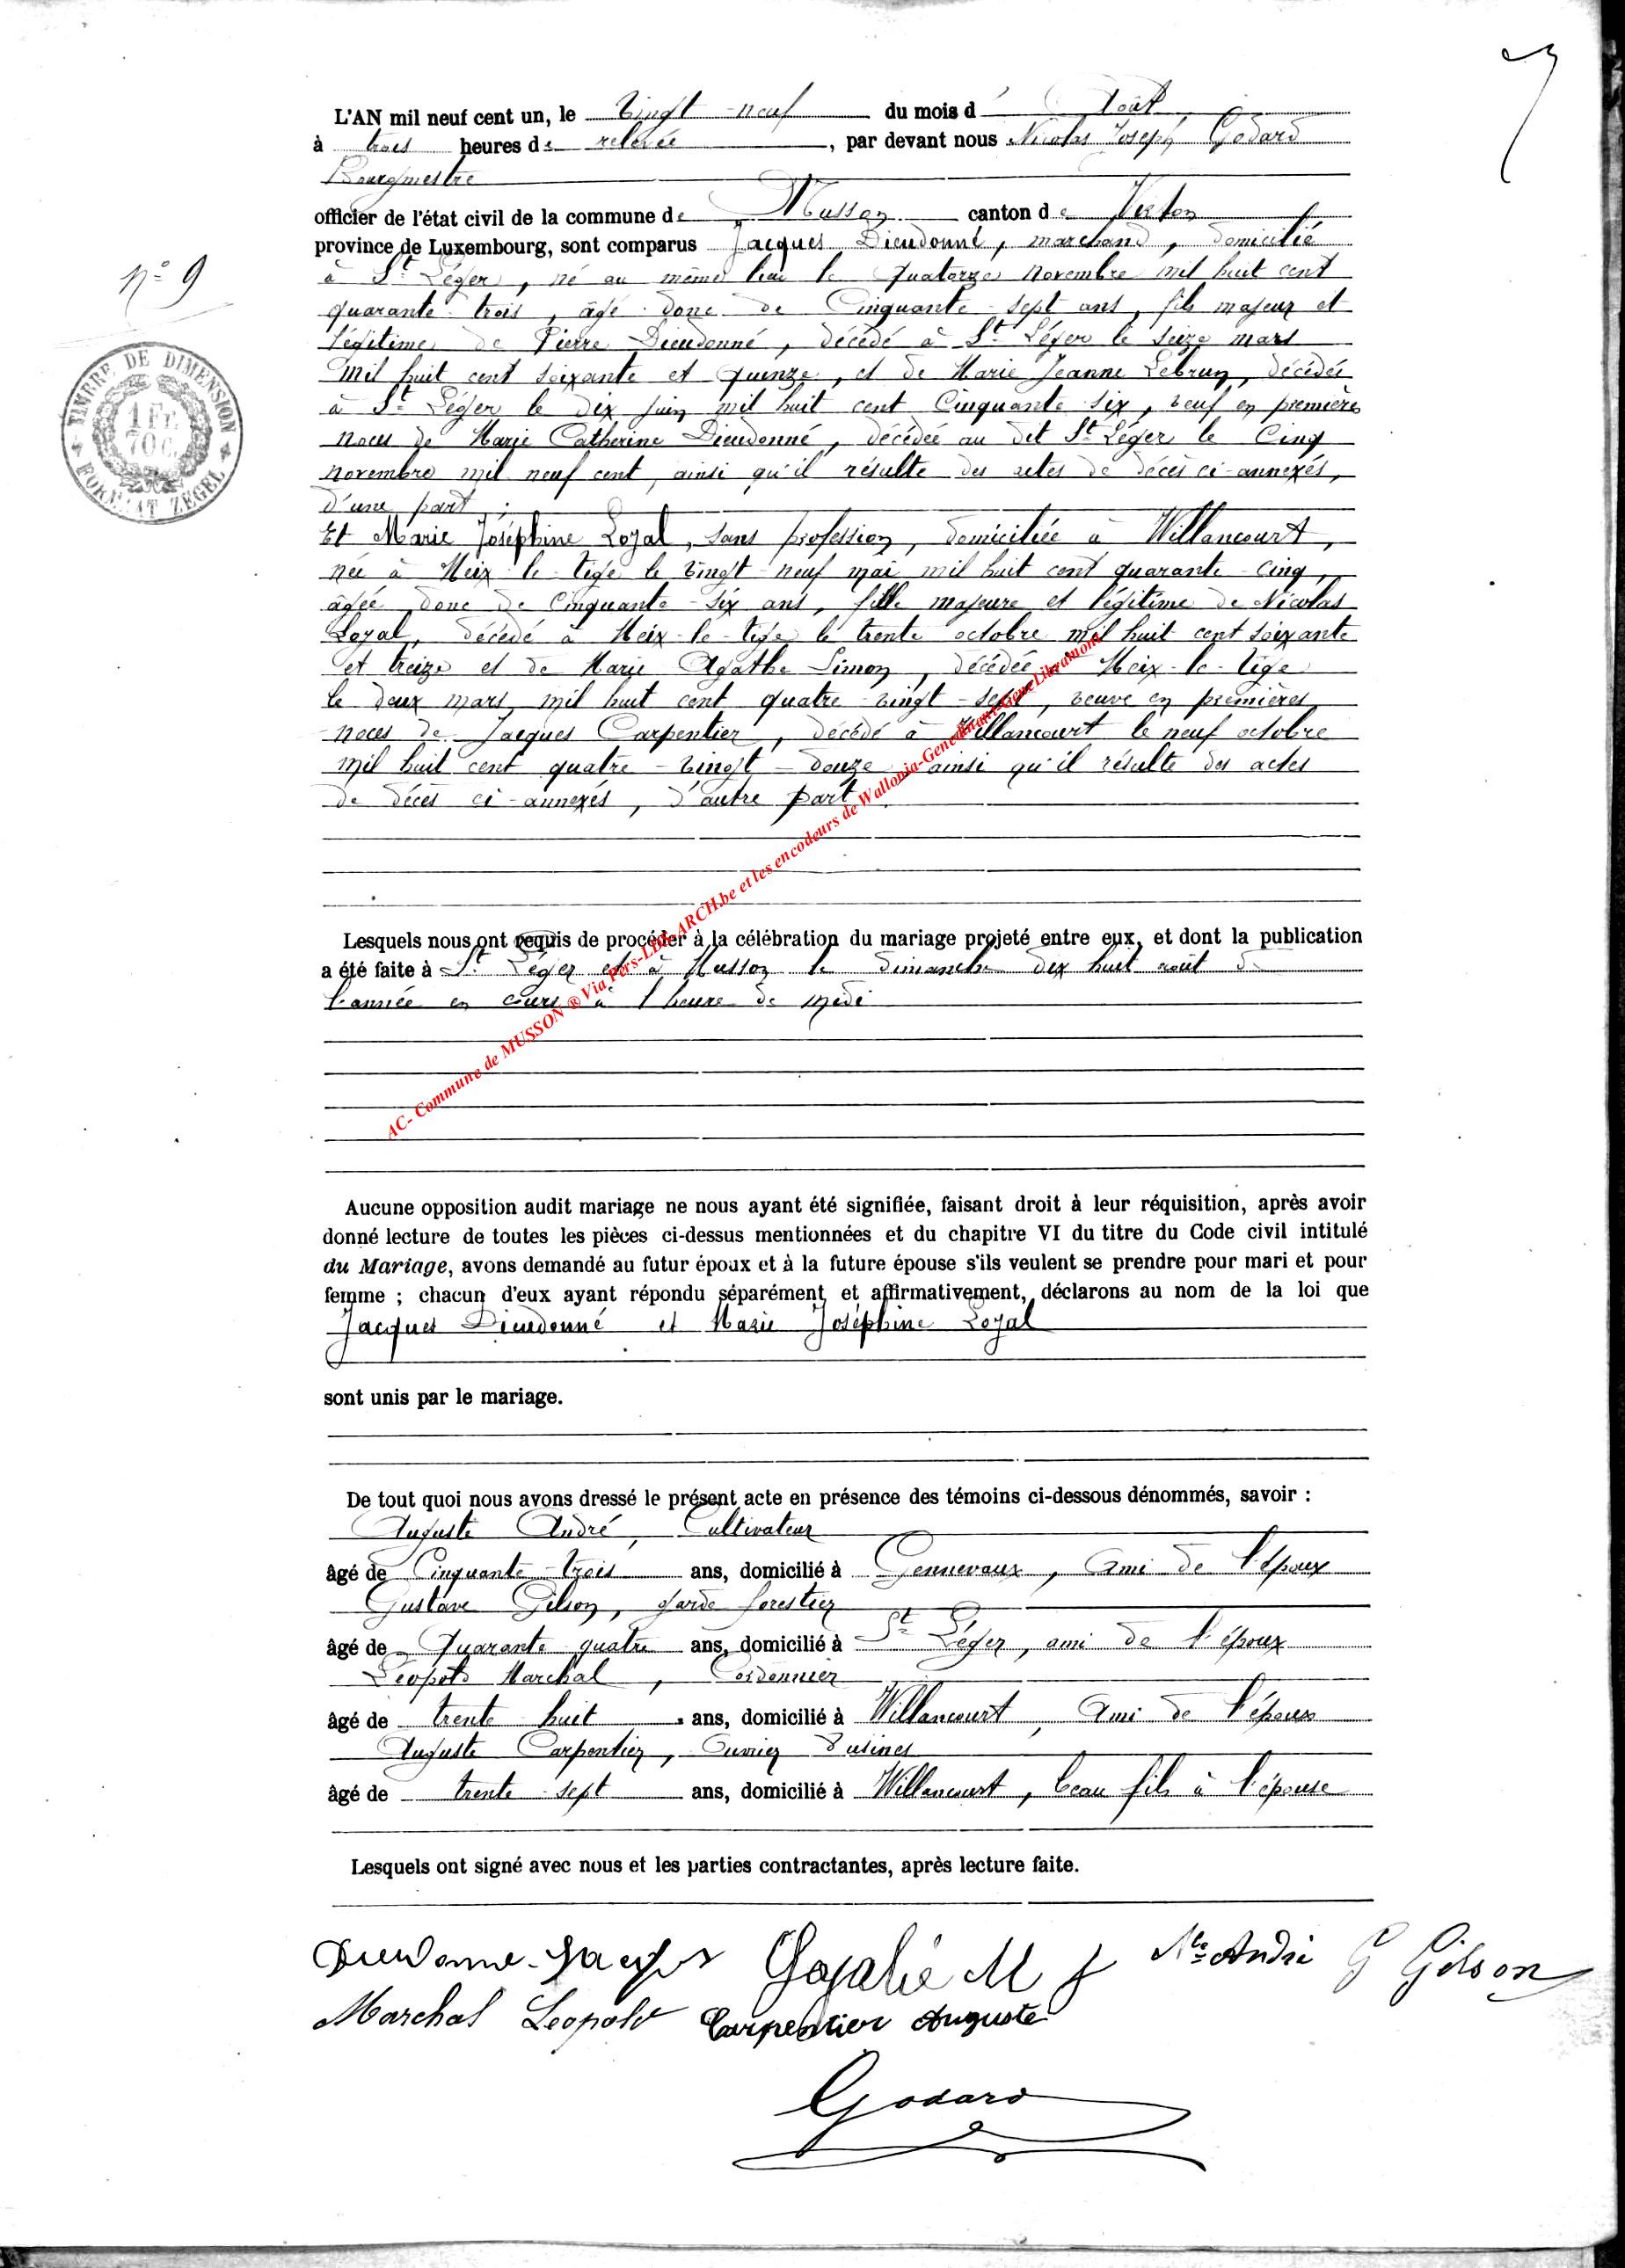 7
L'AN mil neuf cent un, le Vingt-neuf du mois d'Août
à trois heures de relevée, par devant nous Nicolas Joseph Godard
Bourgmestre
officier de l'état civil de la commune de Musson canton de Virton
province de Luxembourg, sont comparus Jacques Dieudonné, marchand, domicilié
à St Léger, né au même lieu le quatorze novembre mil huit cent
quarante-trois, âgé donc de Cinquante-sept ans, fils majeur et
légitime de Pierre Dieudonné, décédé à St Léger le seize mars
mil huit cent soixante et quinze, et de Marie Jeanne Lebrun, décédée
à St Léger le dix juin mil huit cent Cinquante-six, veuf en premières
noces de Marie Catherine Dieudonné, décédée au dit St Léger le Cinq
novembre mil neuf cent, ainsi qu'il résulte des actes de décès ci-annexés,
d'une part;
Et Marie Joséphine Loyal, sans profession, domiciliée à Willancourt,
née à Meix-le-tige le vingt-neuf mai mil huit cent quarante-cinq,
âgée donc de Cinquante-six ans, fille majeure et légitime de Nicolas
Loyal, décédé à Meix-le-tige le trente octobre mil huit cent soixante
et treize et de Marie Agathe Simon, décédée à Meix-le-tige
le deux mars mil huit cent quatre-vingt-sept, veuve en premières
noces de Jacques Carpentier, décédé à Willancourt le neuf octobre
mil huit cent quatre-vingt-douze ainsi qu'il résulte des actes
de décès ci-annexés, d'autre part.
Lesquels nous ont requis de procéder à la célébration du mariage projeté entre eux, et dont la publication
a été faite à St Léger et à Musson le dimanche dix huit août de
l'année en cours à l'heure de midi
Aucune opposition audit mariage ne nous ayant été signifiée, faisant droit à leur réquisition, après avoir
donné lecture de toutes les pièces ci-dessus mentionnées et du chapitre VI du titre du Code civil intitulé
du Mariage, avons demandé au futur époux et à la future épouse s'ils veulent se prendre pour mari et pour
femme ; chacun d'eux ayant répondu séparément et affirmativement, déclarons au nom de la loi que
Jacques Dieudonné et Marie Joséphine Loyal
sont unis par le mariage.
De tout quoi nous avons dressé le présent acte en présence des témoins ci-dessous dénommés, savoir :
Auguste André, Cultivateur
âgé de Cinquante-trois ans, domicilié à Gennevaux, Ami de l'Epoux
Gustave Gilson, garde forestier
âgé de Quarante-quatre ans, domicilié à St Léger, ami de l'époux
Léopold Marchal, Cordonnier
âgé de trente huit ans, domicilié à Willancourt, Ami de l'époux
Auguste Carpentier, Ouvrier d'usines
âgé de trente-sept ans, domicilié à Willancourt, beau fils à l'épouse
Lesquels ont signé avec nous et les parties contractantes, après lecture faite.
Dieudonne-Jacques M J Nte André G Gilson
Marchal Leopold Carpentier Auguste
Godard
n° 9
TIMBRE DE DIMENSION
1 Fr.
70 C.
FORMAAT ZEGEL
AC- Commune de MUSSON ® Via Pers-LDH-ARCH.be et les encodeurs de Wallonia-Gene